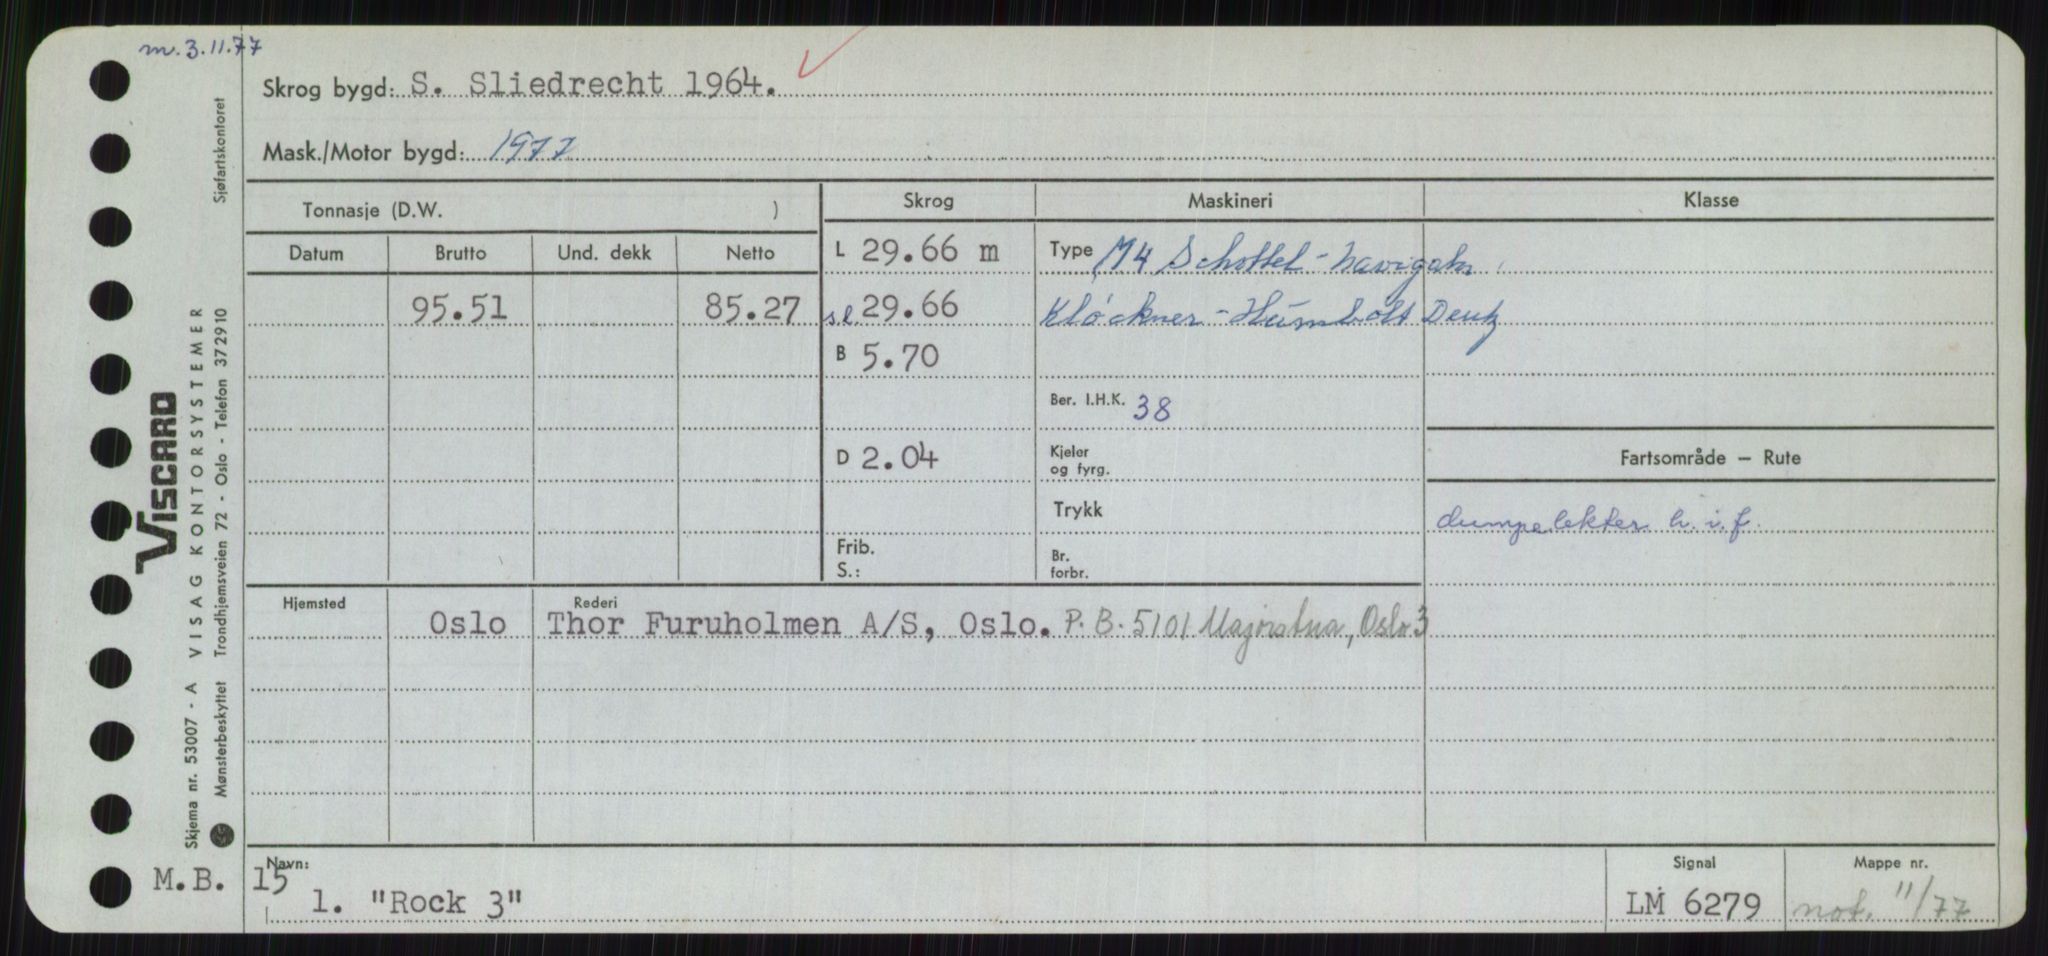 m. 3.11.77
Skrog bygd: S. Sliedrecht 1964.
Mask./Motor bygd: 1977
Tonnasje (D.W. )
Skrog
Maskineri
Klasse
Datum Brutto Und. dekk Netto
L 29.66 m
Type M4 Schottel - navigator
95.51 85.27
sl. 29.66
Klöckner - Humbolt Deutz
B 5.70
Ber. I.H.K. 38
D 2.04
Kjeler
og fyrg.
Fartsområde — Rute
Trykk
dumpelekter h.i.f.
Frib.
S.:
Br.
forbr.
Hjemsted
Oslo
Rederi
Thor Furuholmen A/S, Oslo. P.B. 5101 Majorstua, Oslo 3
Navn:
M.B. 15
1. "Rock 3"
Signal
LM 6279
Mappe nr.
not. 11/77
VISCARD
VISAG KONTORSYSTEMER
Sjøfartskontoret
Trondhjemsveien 72 - Oslo - Telefon 372910
Skjema nr. 53007 - A
Mønsterbeskyttet